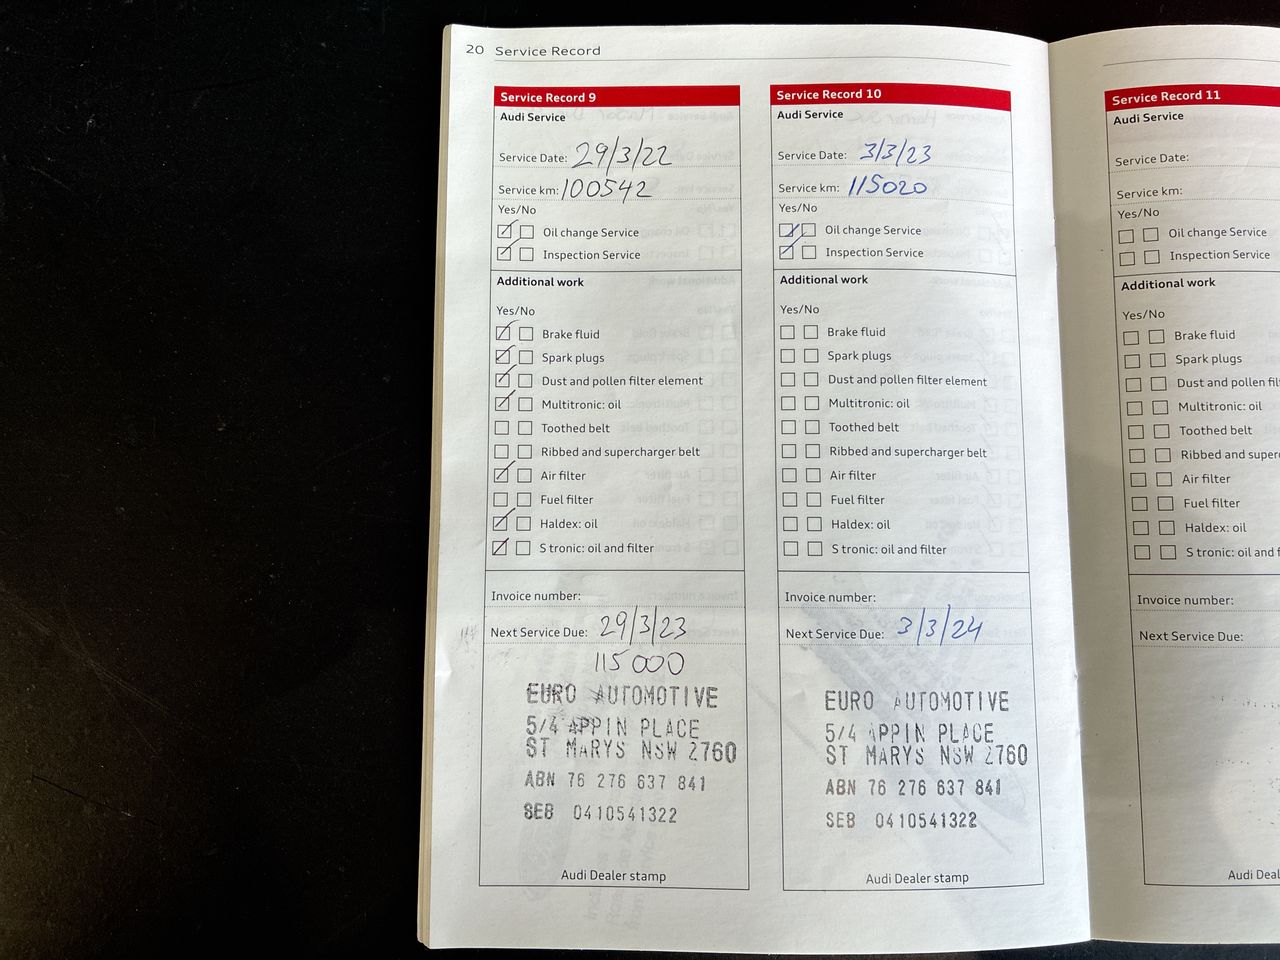 20 Service Record
Service Record 9
Audi Service
Service Date: 29/3/22
Service km: 100542
Yes/No
Oil change Service
Inspection Service
Additional work
Yes/No
Brake fluid
Spark plugs
Dust and pollen filter element
Multitronic: oil
Toothed belt
Ribbed and supercharger belt
Air filter
Fuel filter
Haldex: oil
S tronic: oil and filter
Invoice number:
Next Service Due: 29/3/23
115 000
EURO AUTOMOTIVE
5/4 APPIN PLACE
ST MARYS NSW 2760
ABN 76 276 637 841
SEB 0410541322
Audi Dealer stamp
Service Record 10
Audi Service
Service Date: 3/3/23
Service km: 115020
Yes/No
Oil change Service
Inspection Service
Additional work
Yes/No
Brake fluid
Spark plugs
Dust and pollen filter element
Multitronic: oil
Toothed belt
Ribbed and supercharger belt
Air filter
Fuel filter
Haldex: oil
S tronic: oil and filter
Invoice number:
Next Service Due: 3/3/24
EURO AUTOMOTIVE
5/4 APPIN PLACE
ST MARYS NSW 2760
ABN 76 276 637 841
SEB 0410541322
Audi Dealer stamp
Service Record 11
Audi Service
Service Date:
Service km:
Yes/No
Oil change Service
Inspection Service
Additional work
Yes/No
Brake fluid
Spark plugs
Dust and pollen fil
Multitronic: oil
Toothed belt
Ribbed and super
Air filter
Fuel filter
Haldex: oil
S tronic: oil and f
Invoice number:
Next Service Due:
Audi Deal